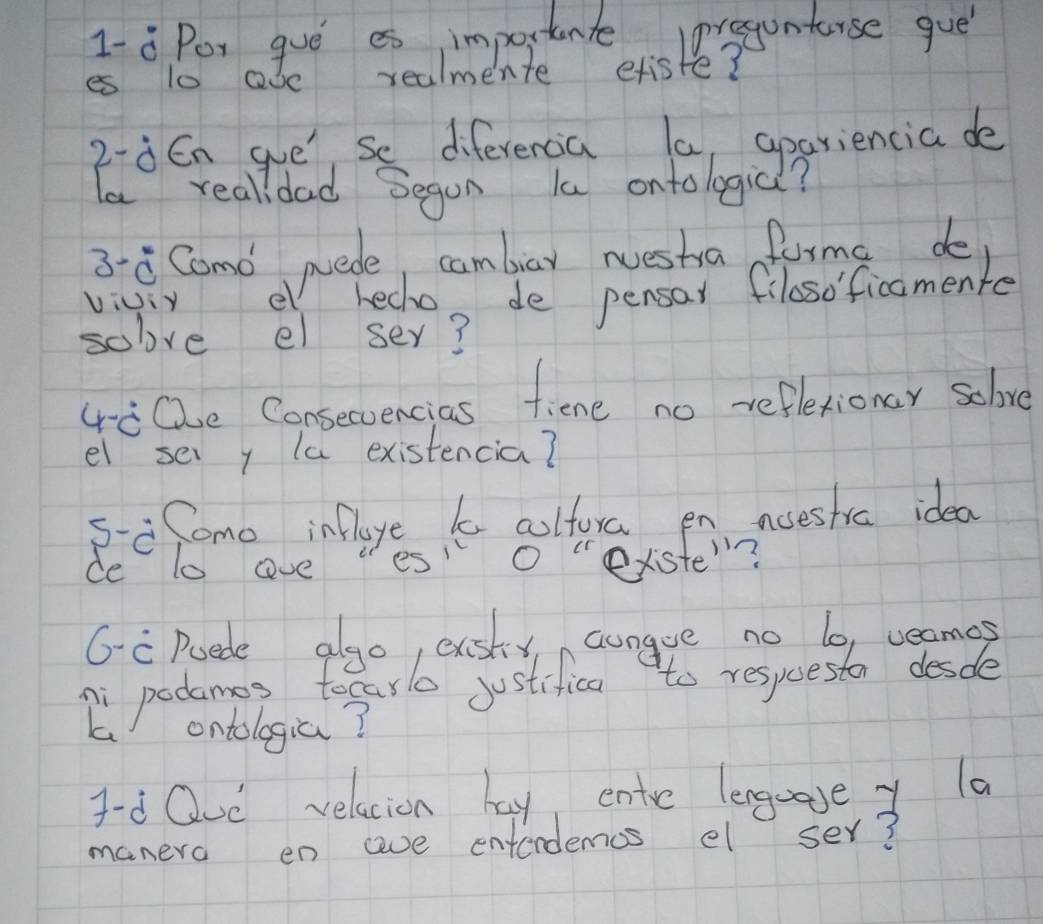 1-¿Por qué es importante preguntarse qué
es lo que realmente existe?
2-¿En qué se diferencia la apariencia de
la realidad Segun la ontologia?
3-¿Comó puede cambiar nuestra forma de
vivir el hecho de pensar filosóficamente
sobre el ser?
4-¿Que Consecuencias tiene no reflexionar sobre
el ser y la existencia?
5-¿Como influye la cultura en nuestra idea
de lo que "es" o "existe"?
6-¿Puede algo existir, aunque no lo veamos
ni podamos tocarlo justifica tu respuesta desde
la ontologia?
7-¿Qué relacion hay entre lenguaje y la
manera en que entendemos el ser?